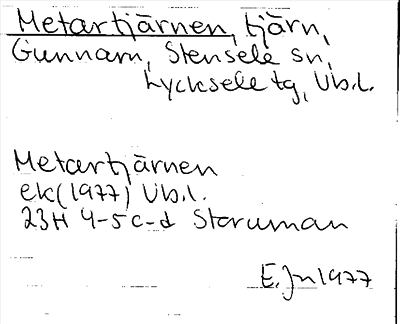 Metartjärnen, tjärn,
Gunnarn, Stensele sn,
Lycksele tg, Vb.l.
Metartjärnen
ek(1977) Vb.l.
23H 4-5c-d Storuman
E.Jn 1977